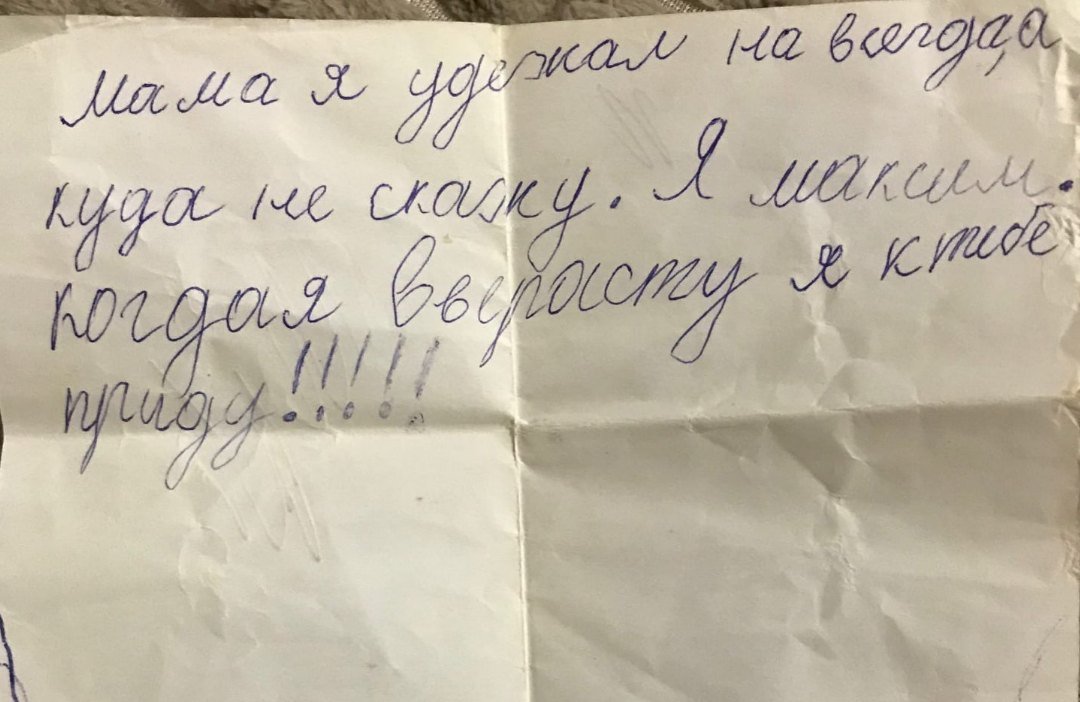 мама я удежал на всегда, а
куда не скажу. Я максим.
когда я вырасту я к тебе
приду!!!!!